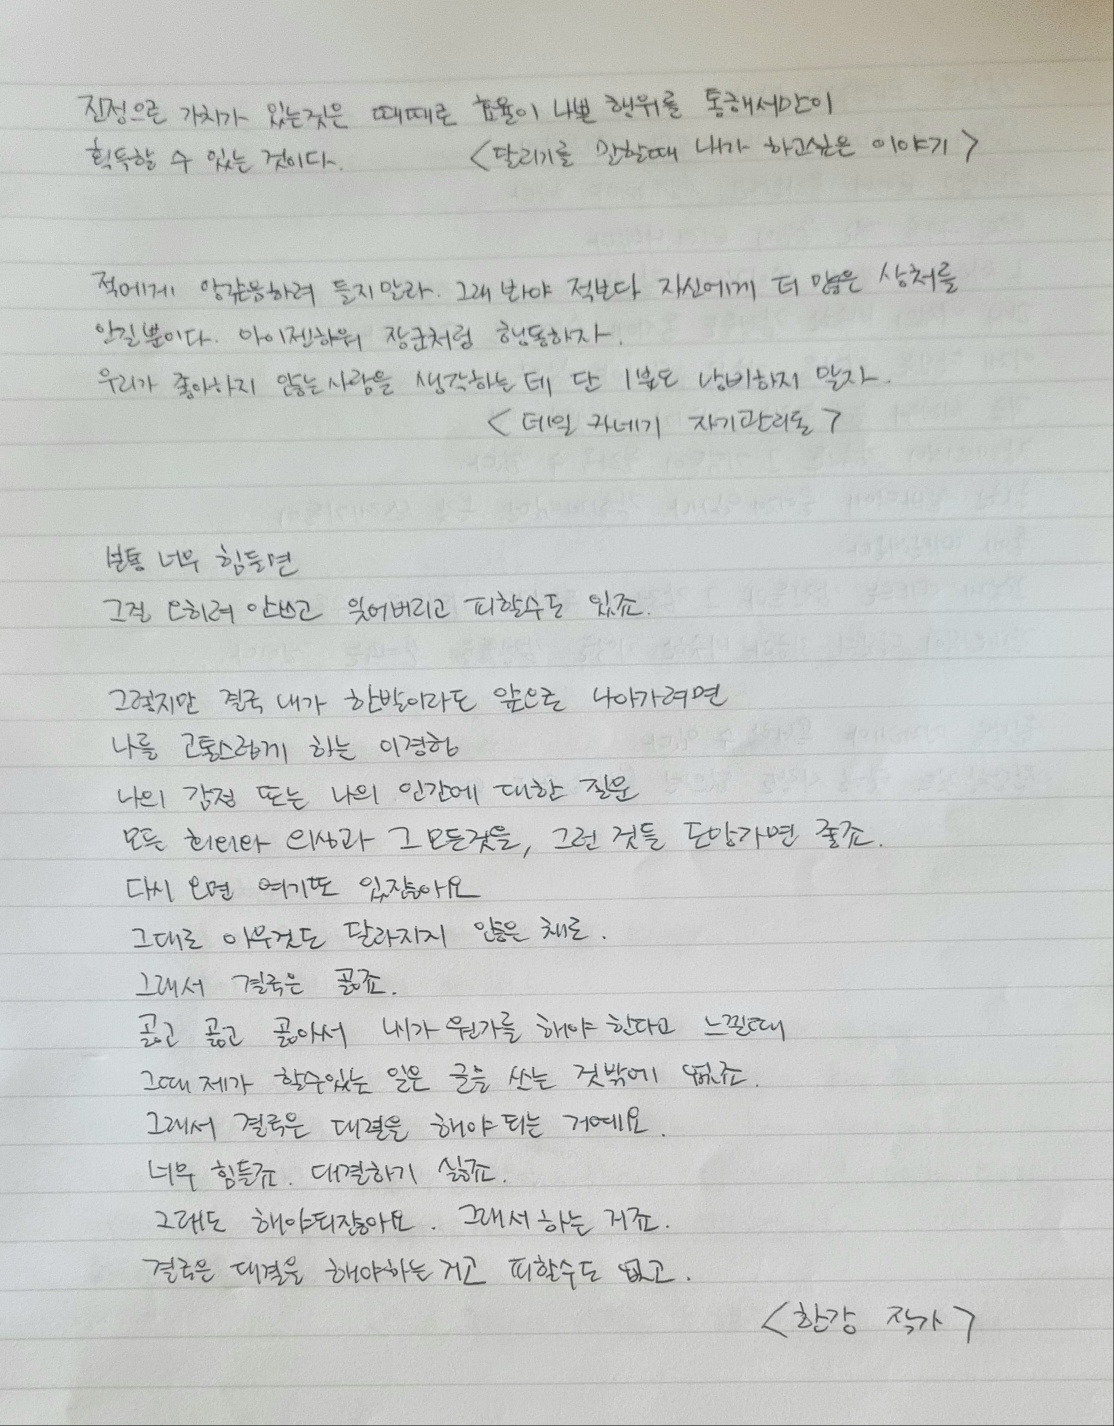 진정으로 가치가 있는것은 때때로 효율이 나쁜 행위를 통해서만이
획득할 수 있는 것이다. <달리기를 말할때 내가 하고싶은 이야기>
적에게 앙갚음하려 들지말라. 그래 봐야 적보다 자신에게 더 많은 상처를
안길뿐이다. 아이젠하워 장군처럼 행동하자.
우리가 좋아하지 않는사람을 생각하는 데 단 1분도 낭비하지 말자.
<데일 카네기 자기관리론>
보통 너무 힘들면
그걸 오히려 안쓰고 잊어버리고 피할수도 있죠.
그렇지만 결국 내가 한발이라도 앞으로 나아가려면
나를 고통스럽게 하는 이경험
나의 감정 또는 나의 인간에 대한 질문
모든 회의와 의심과 그 모든것을, 그런 것들 도망가면 좋죠.
다시 오면 여기또 있잖아요
그대로 아무것도 달라지지 않은 채로.
그래서 결국은 곪죠.
곪고 곪고 곪아서 내가 뭔가를 해야 한다고 느낄때
그때 제가 할수있는 일은 글을 쓰는 것밖에 없죠.
그래서 결국은 대결을 해야 되는 거예요.
너무 힘들죠. 대결하기 싫죠.
그래도 해야되잖아요. 그래서 하는 거죠.
결국은 대결을 해야하는 거고 피할수도 없고.
<한강 작가>